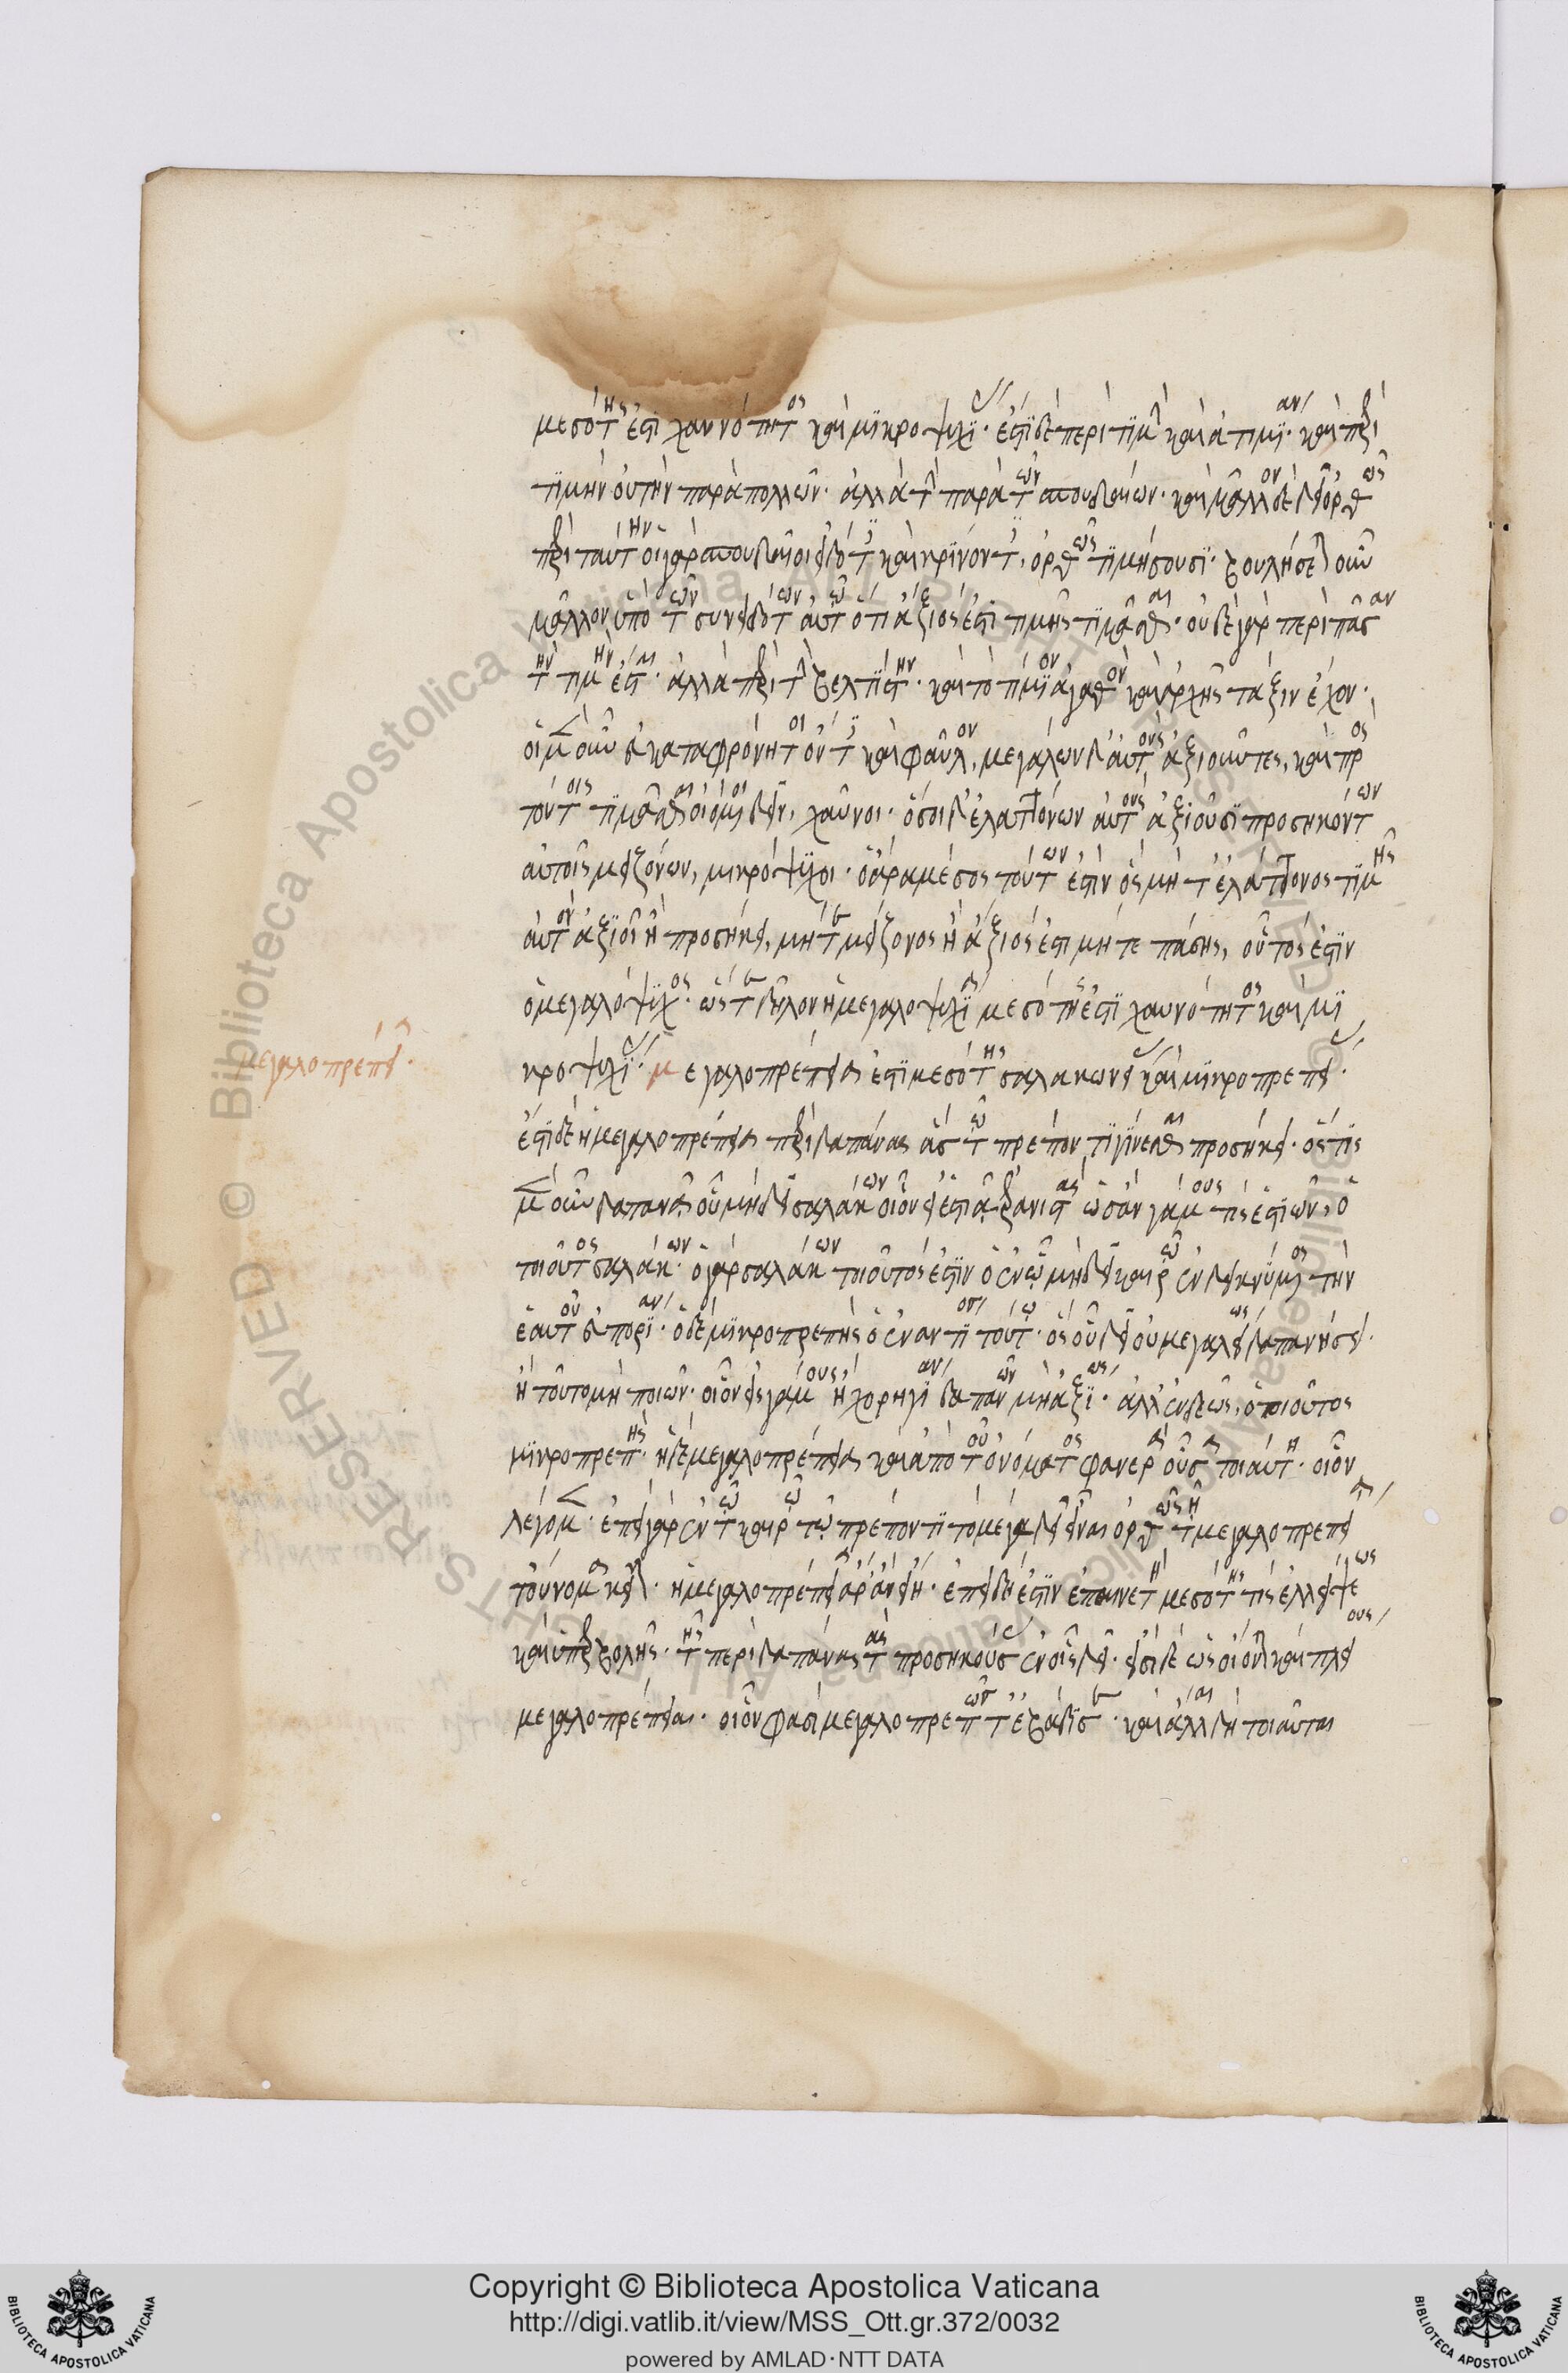 μεσότης ἐστὶ χαυνότητος καὶ μικροψυχίας· ἐστὶ δὲ περὶ τιμὴν καὶ ἀτιμίαν· καὶ περὶ
τιμὴν οὐ τὴν παρὰ πολλῶν· ἀλλὰ τὴν παρὰ τῶν σπουδαίων· καὶ μᾶλλον δὲ ὀρθῶς
περὶ ταύτην οἱ γὰρ σπουδαῖοι εἰδότες καὶ κρίνοντες, ὀρθῶς τιμήσουσι· βουλήσεται οὖν
μᾶλλον ὑπὸ τῶν συνειδότων αὐτῷ ὅτι ἄξιός ἐστι τιμῆς τιμᾶσθαι· οὐδὲ γὰρ περὶ πᾶσαν
τὴν τιμὴν ἔσται· ἀλλὰ περὶ τὴν βελτίστην· καὶ τὸ τίμιον ἀγαθὸν καὶ ἀρχῆς τάξιν ἔχον·
οἱ μὲν οὖν εὐκαταφρόνητοι ὄντες καὶ φαῦλοι, μεγάλων δ' αὑτοὺς ἀξιοῦντες, καὶ πρὸς
τούτοις τιμᾶσθαι οἰόμενοι δεῖν, χαῦνοι· ὅσοι δ' ἐλαττόνων αὑτοὺς ἀξιοῦσι προσηκόντων
αὐτοῖς μειζόνων, μικρόψυχοι· ὁ ἄρα μέσος τούτων ἐστὶν ὃς μήτ' ἐλάττονος τιμῆς
αὑτὸν ἀξιοῖ ἢ προσήκει, μήτε μείζονος ἢ ἄξιός ἐστι μήτε πάσης, οὗτος ἐστὶν
ὁ μεγαλόψυχος· ὥστε δῆλον ἡ μεγαλοψυχία μεσότης ἐστὶ χαυνότητος καὶ μι
κροψυχίας· μεγαλοπρέπεια ἐστὶ μεσότης σαλακωνείας καὶ μικροπρεπείας·
ἔστι δὲ ἡ μεγαλοπρέπεια περὶ δαπάνας ἃς τῷ πρέποντι γίνεσθαι προσήκει· ὅστις
μὲν οὖν δαπανᾷ οὗ μὴ δεῖ σαλάκων οἷον εἰ ἑστιᾷ ἐρανιστὰς ὡς ἂν γάμους τις ἑστιῶν, ὁ
τοιοῦτος σαλάκων· ὁ γὰρ σαλάκων τοιοῦτος ἐστὶν ὁ ἐν ᾧ μὴ δεῖ καιρῷ ἐνδεικνύμενος τὴν
ἑαυτοῦ εὐπορίαν· ὁ δὲ μικροπρεπὴς ὁ ἐναντίος τούτῳ· ὃς οὗ δεῖ οὐ μεγαλείως δαπανήσει·
ἢ τοῦτο μὴ ποιῶν· οἷον εἰς γάμους ἢ χορηγίαν δαπανῶν μὴ ἀξίως· ἀλλ' ἐνδεῶς, ὁ τοιοῦτος
μικροπρεπής· ἡ δὲ μεγαλοπρέπεια καὶ ἀπὸ τοῦ ὀνόματος φανερὰ οὖσα τοιαύτη· οἷον
λέγομεν· ἐπεὶ γὰρ ἐν τῷ καιρῷ τῷ πρέποντι τὸ μέγα δεῖ εἶναι ὀρθῶς τῇ μεγαλοπρεπείᾳ
τοὔνομα κεῖται· ἡ μεγαλοπρέπεια ἄρ' ἂν εἴη· ἐπειδὴ ἐστὶν ἐπαινετὴ μεσότης τις ἐλλείψεως
καὶ ὑπερβολῆς· τῆς περὶ δαπάνας τὰς προσηκούσας ἐν οἷς δεῖ· εἰσὶ δὲ ὡς οἴονται καὶ πλείους
μεγαλοπρέπειαι· οἷον φασὶ μεγαλοπρεπῶς τε ἐβάδισε· καὶ ἄλλαι δὴ τοιαῦται
μεγαλοπρέπεια·
Copyright © Biblioteca Apostolica Vaticana
http://digi.vatlib.it/view/MSS_Ott.gr.372/0032
powered by AMLAD·NTT DATA
BIBLIOTECA APOSTOLICA VATICANA
BIBLIOTECA APOSTOLICA VATICANA